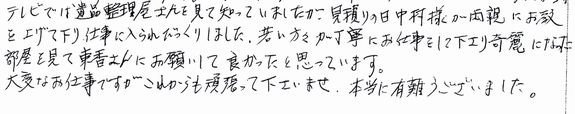 テレビでは遺品整理屋さんを見て知っていましたが、見積りの日中村様が両親にお赦
を上げて下り仕事に入られびっくりしました。若い方々が丁寧にお仕事をして下さり奇麗になった
部屋を見て東香さんにお願いして良かったと思っています。
大変なお仕事ですがこれからも頑張って下さいませ、本当に有難うございました。